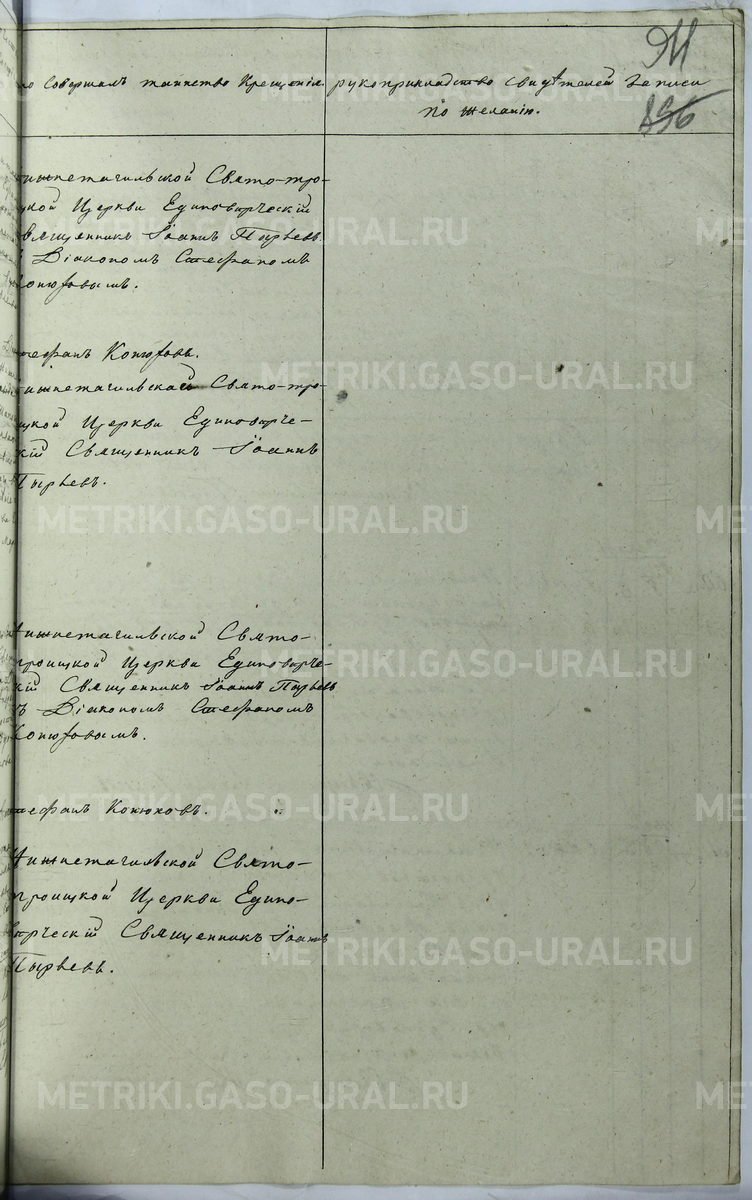 911
836
о Совершалъ таинство Крещенія.
рукоприкладство свидѣтелей записи
по желанію.
ижнетагильской Свято-тро-
цкой Церкви Единовѣрческій
Священникъ Іоаннъ Пырьевъ
Діакономъ Стефаномъ
Конюховымъ.
тефанъ Конюховъ.
ижнетагильской Свято-тро-
ицкой Церкви Единовѣрче-
скій Священникъ Іоаннъ
Пырьевъ.
Нижнетагильской Свято-
троицкой Церкви Единовѣрче-
скій Священникъ Іоаннъ Пырьевъ
съ Діакономъ Стефаномъ
Конюховымъ.
тефанъ Конюховъ.
Нижнетагильской Свято-
троицкой Церкви Едино-
вѣрческій Священникъ Іоаннъ
Пырьевъ.
METRIKI.GASO-URAL.RU